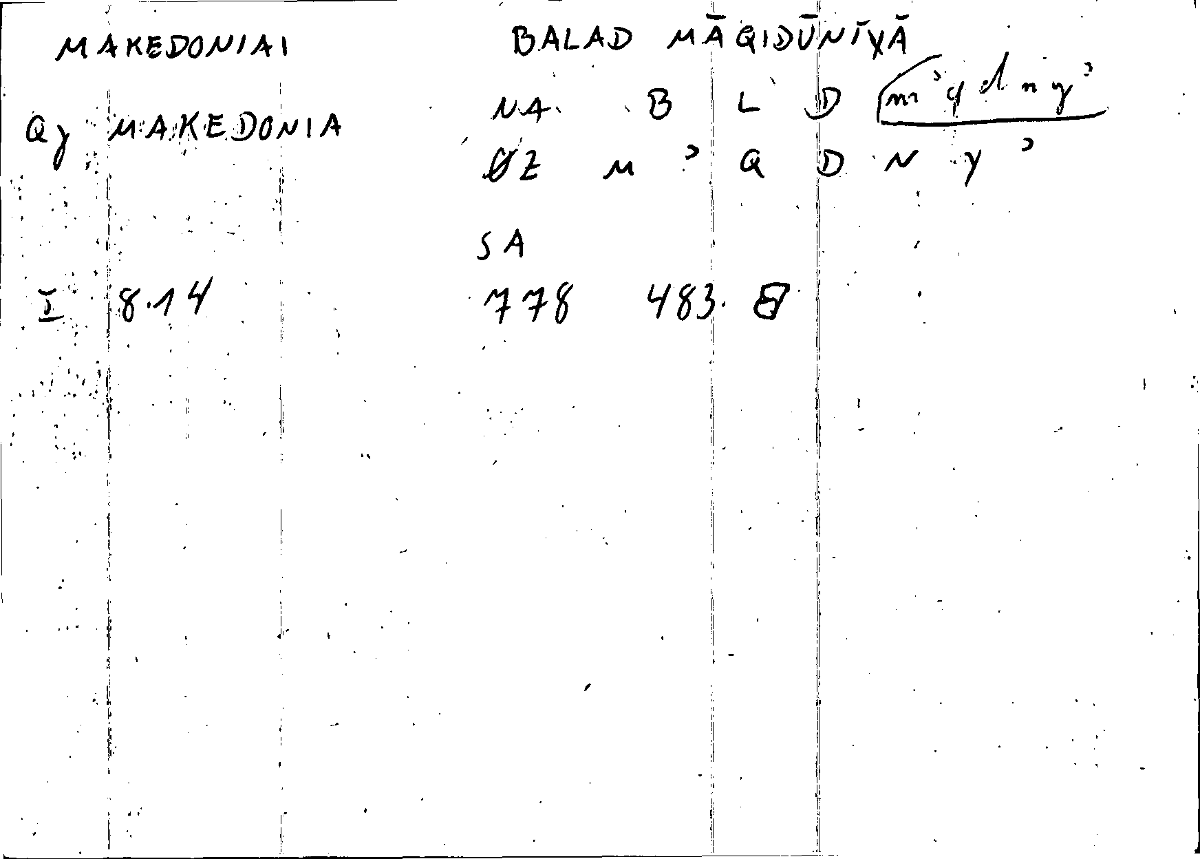 MAKEDONIAI BALAD MĀQIDŪNĪYĀ
NA B L D m ʾ q d n y ʾ
Qy MAKEDONIA
ØZ M ʾ Q D N Y ʾ
SA
I 8.14 778 483. 8